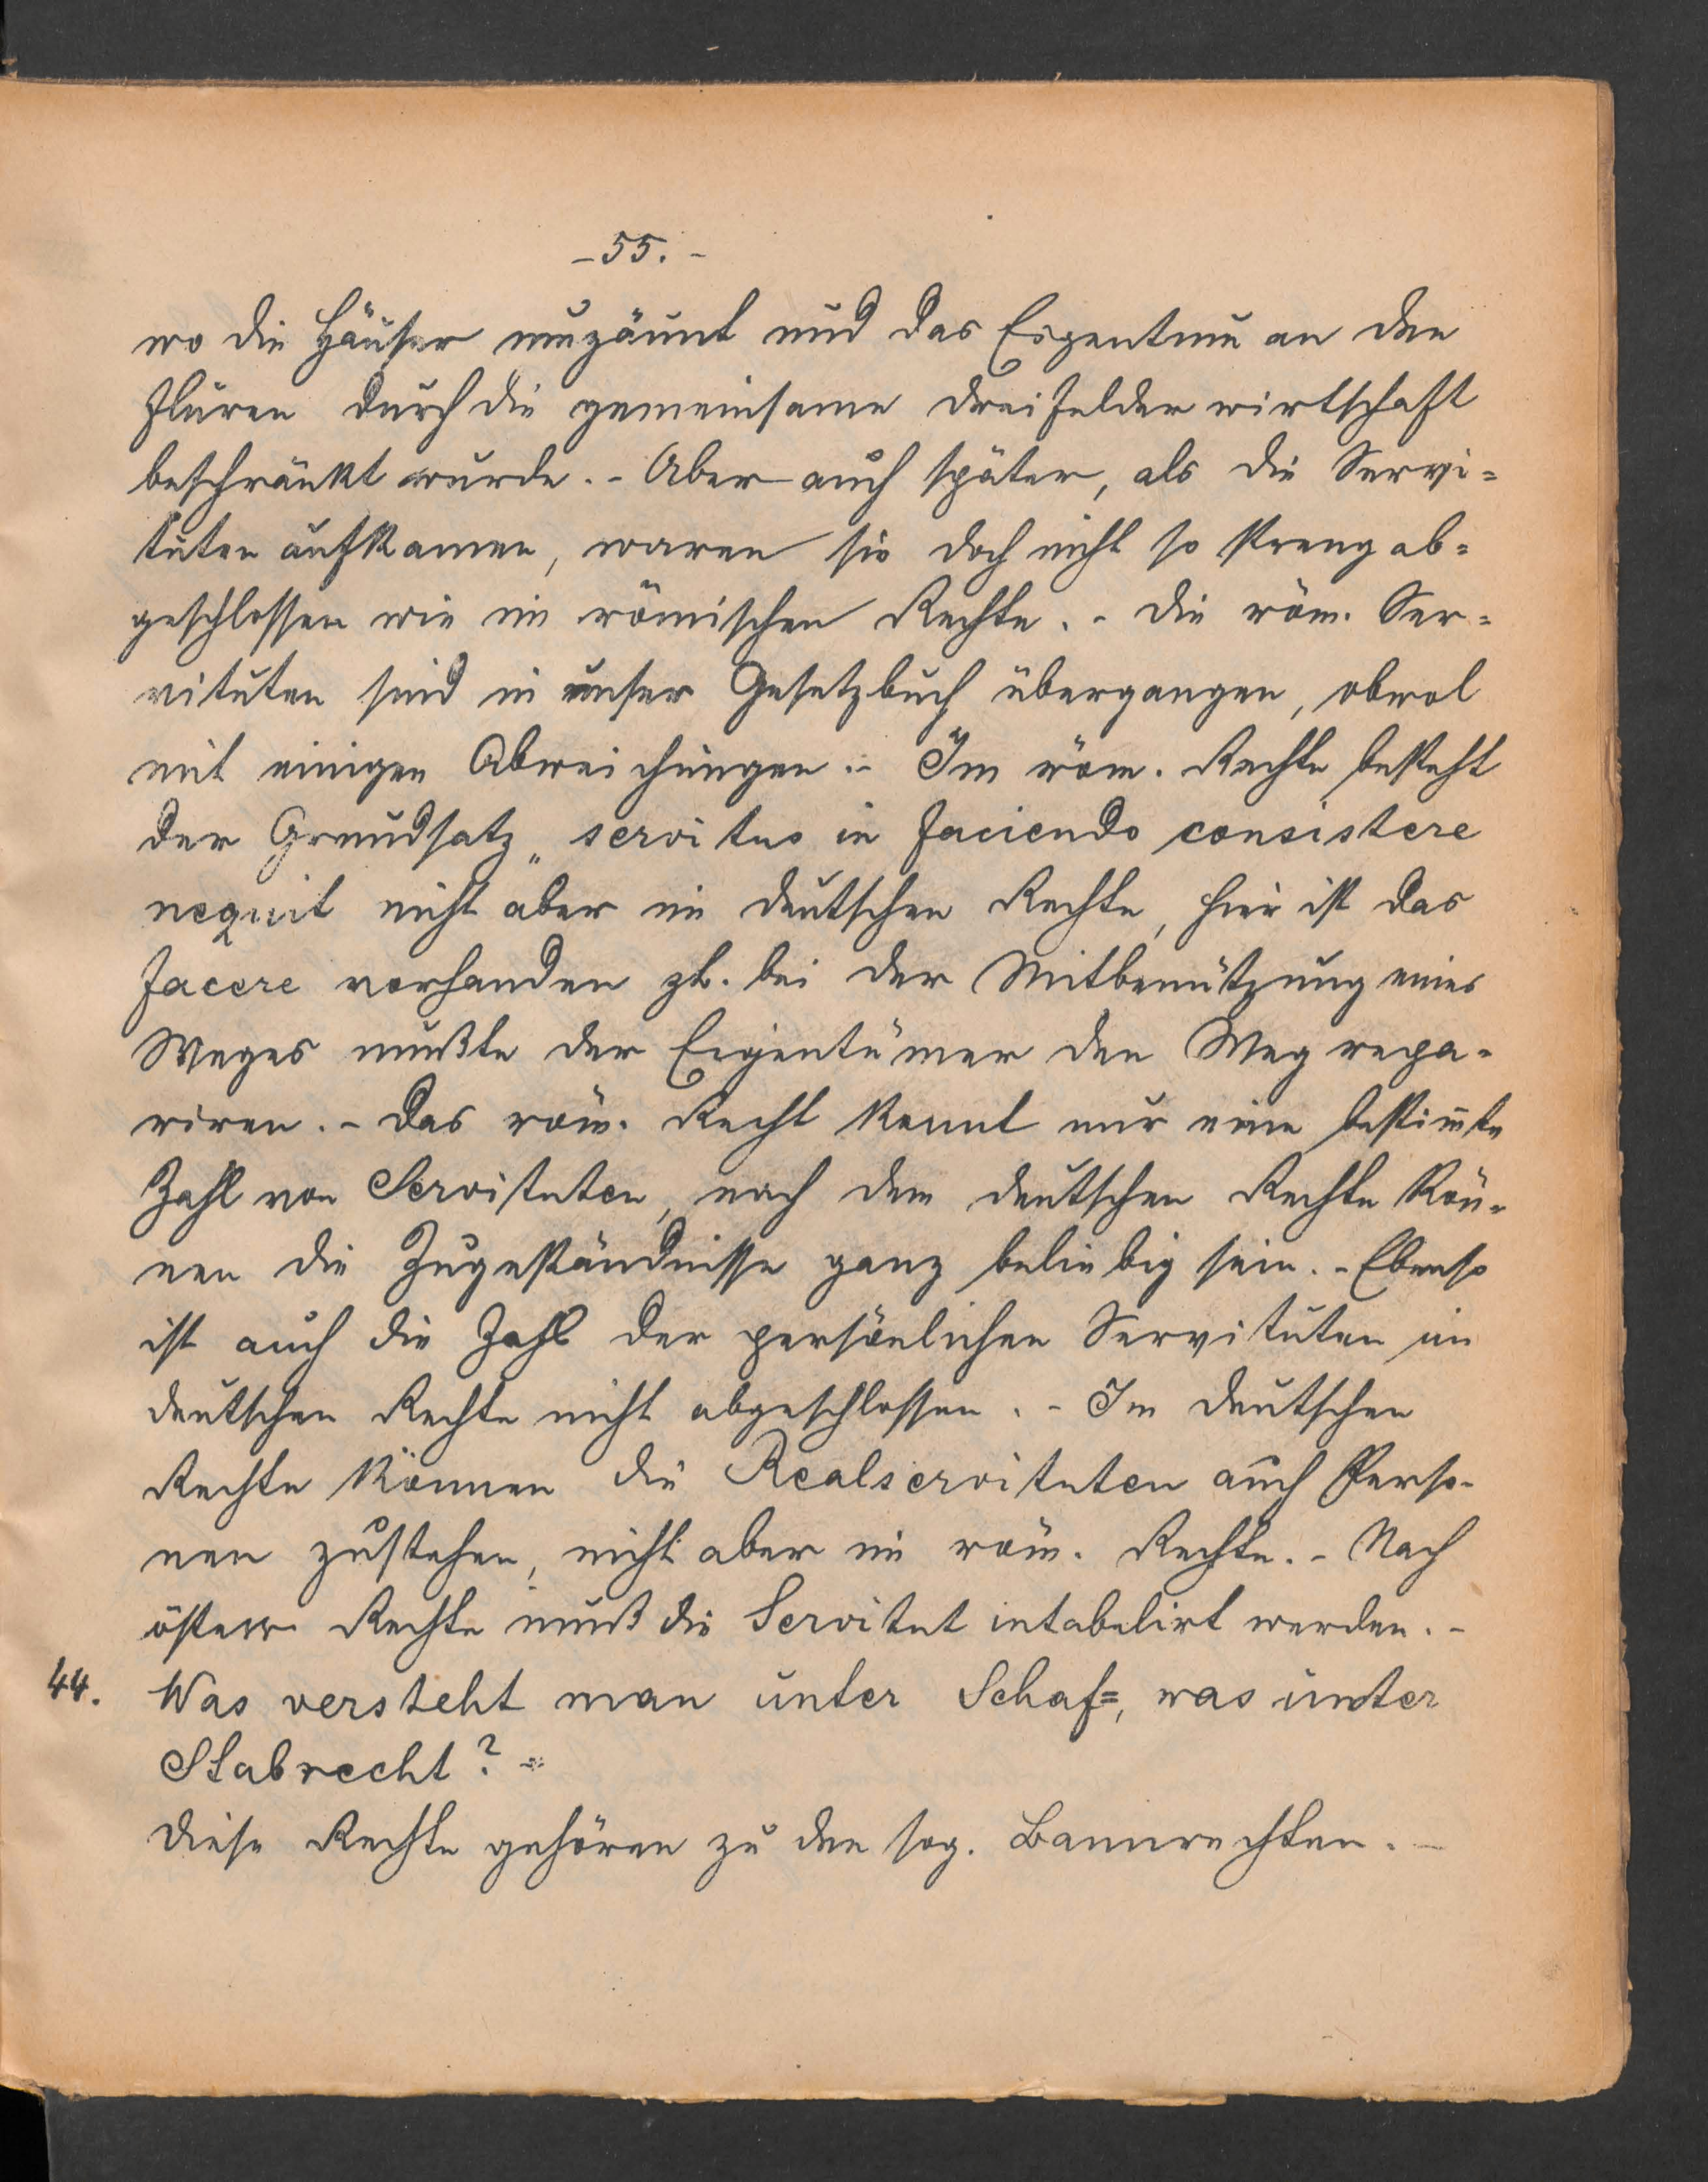 -55.-
wo die Häuser umzäunt und das Eigentum an den
Fluren durch die gemeinsame Dreifelderwirtschaft
beschränkt wurde.- Aber auch später, als die Servi=
tuten aufkamen, waren sie doch nicht so streng ab=
geschlossen wie im römischen Rechte.- Die röm. Ser=
vituten sind in unser Gesetzbuch übergangen, obwol
mit einigen Abweichungen.- Im röm. Rechte besteht
der Grundsatz „servitus in faciendo consistere
nequit nicht aber im deutschen Rechte, hier ist das
facere vorhanden zb. bei der Mitbenützung eines
Weges mußte der Eigentümer den Weg repa-
riren.- Das röm. Recht kennt nur eine bestim̄te
Zahl von Servituten, nach dem deutschen Rechte kön-
nen die Zugeständnisse ganz beliebig sein.- Ebenso
ist auch die Zahl der persönlichen Servituten im
deutschen Rechte nicht abgeschlossen.- Im deutschen
Rechte können die Realservituten auch Perso-
nen zustehen, nicht aber im röm. Rechte.- Nach
österr. Rechte muß die Servitut intabelirt werden.-
44. Was versteht man unter Schaf=, was unter
Stabrecht?-
Diese Rechte gehören zu den sog. Bannrechten.-